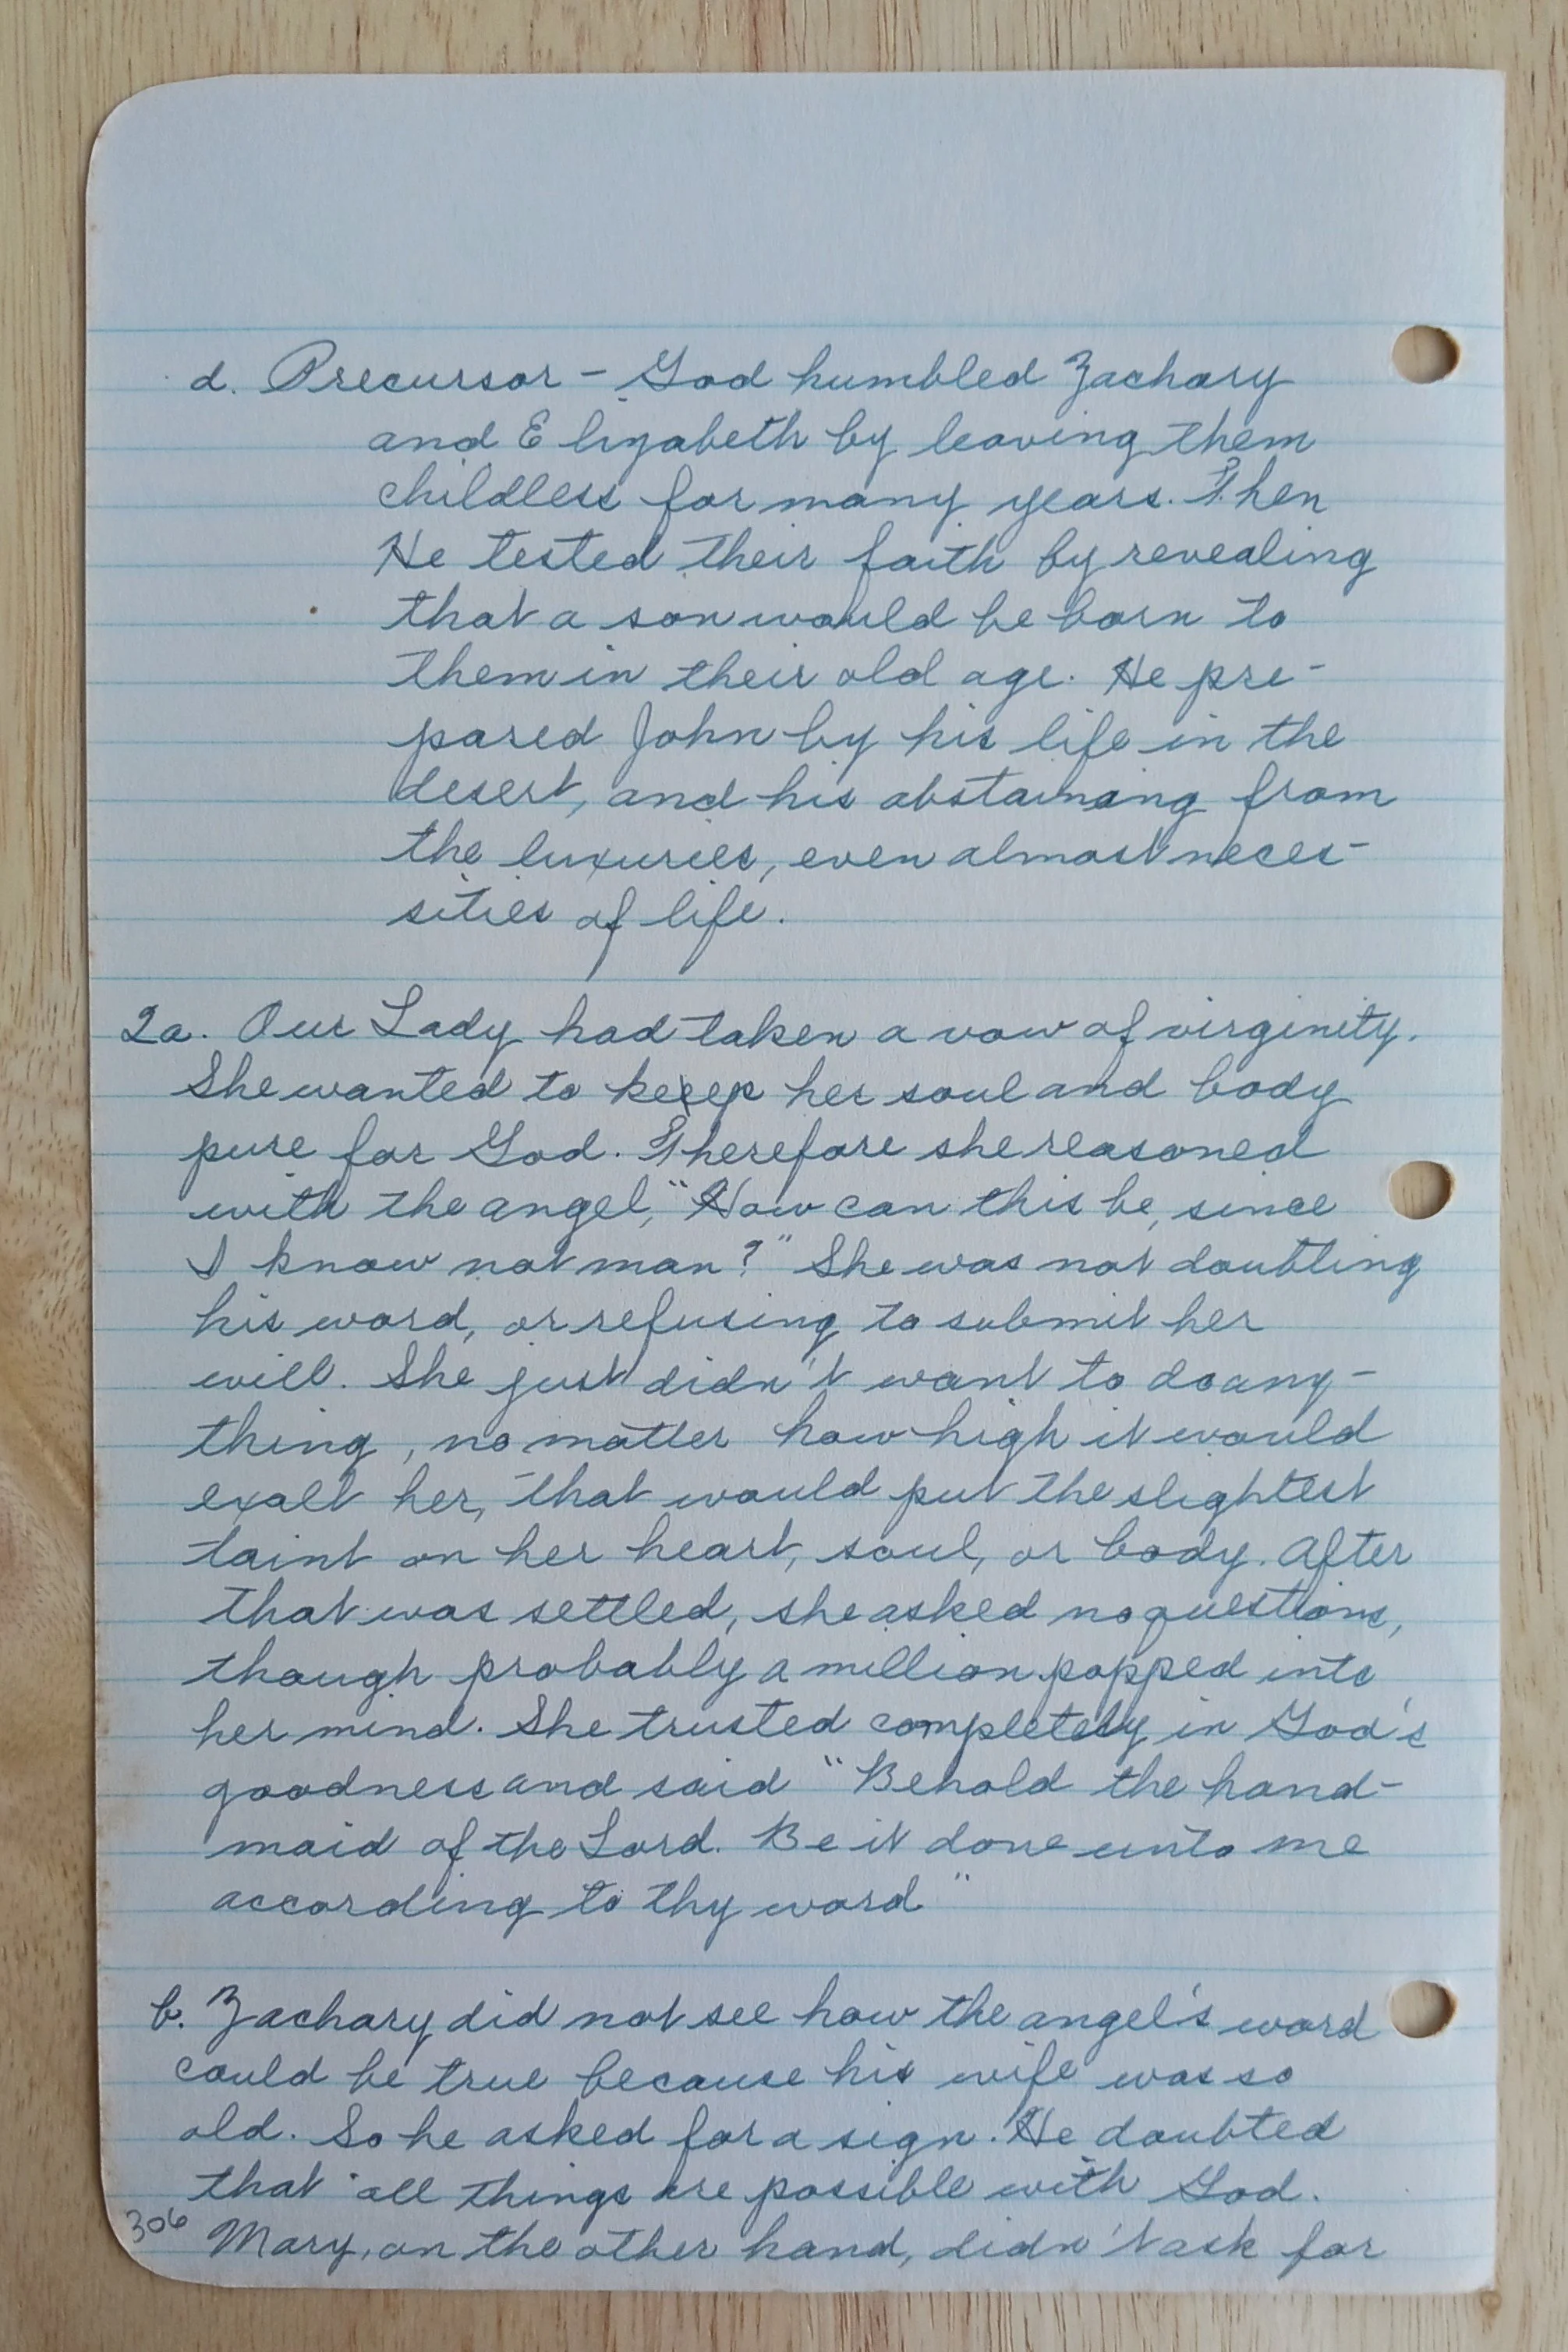 d. Precursor - God humbled Zachary
and Elizabeth by leaving them
childless for many years. Then
He tested their faith by revealing
that a son would be born to
them in their old age. He pre-
pared John by his life in the
desert, and his abstaining from
the luxuries, even almost neces-
sities of life.
2a. Our Lady had taken a vow of virginity.
She wanted to keep her soul and body
pure for God. Therefore she reasoned
with the angel, "How can this be, since
I know not man?" She was not doubting
his word, or refusing to submit her
will. She just didn't want to do any-
thing, no matter how high it would
exalt her, that would put the slightest
taint on her heart, soul, or body. After
that was settled, she asked no questions,
though probably a million popped into
her mind. She trusted completely in God's
goodness and said "Behold the hand-
maid of the Lord. Be it done unto me
according to thy word"
b. Zachary did not see how the angel's word
could be true because his wife was so
old. So he asked for a sign. He doubted
that all things are possible with God.
306 Mary, on the other hand, didn't ask for